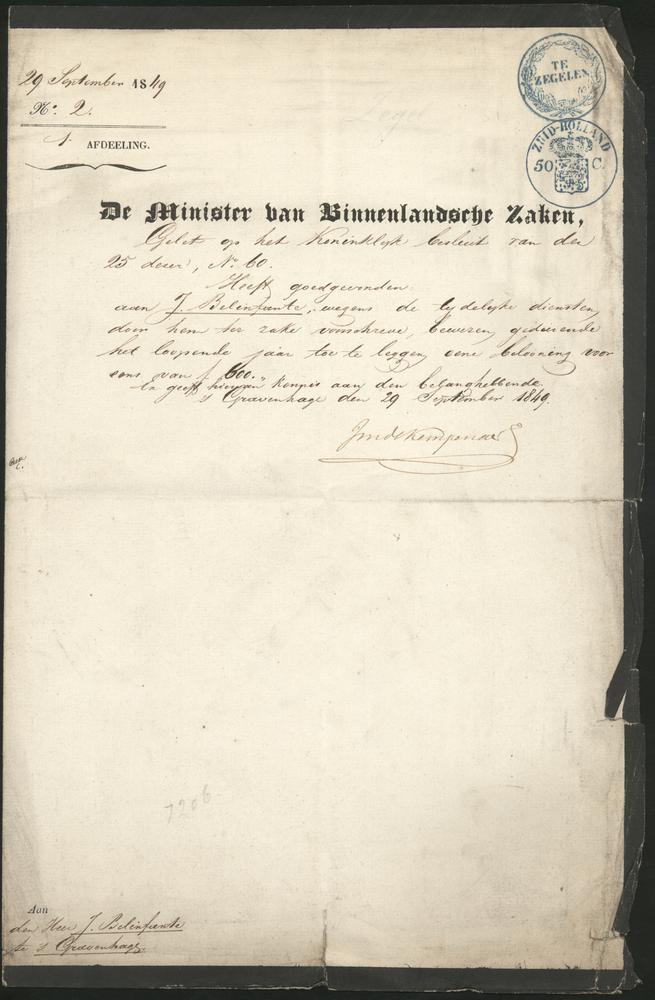 29 September 1849
No. 2.
1. AFDEELING.
TE
ZEGELEN
ZUID-HOLLAND
50 C.
Zegel
De Minister van Binnenlandsche Zaken,
Gelet op het Koninklijk besluit van den
25 dezer, No. 60.
Heeft goedgevonden
aan J. Belinfante, wegens de tijdelijke diensten,
door hem ter zake voorschreve, bewezen, gedurende
het loopende jaar toe te leggen eene belooning voor
eens van f 600.-
En geeft hiervan kennis aan den belanghebbende.
's Gravenhage den 29 September 1849.
JMdeKempenaer
7206
Aan
den Heer J. Belinfante
te 's Gravenhage